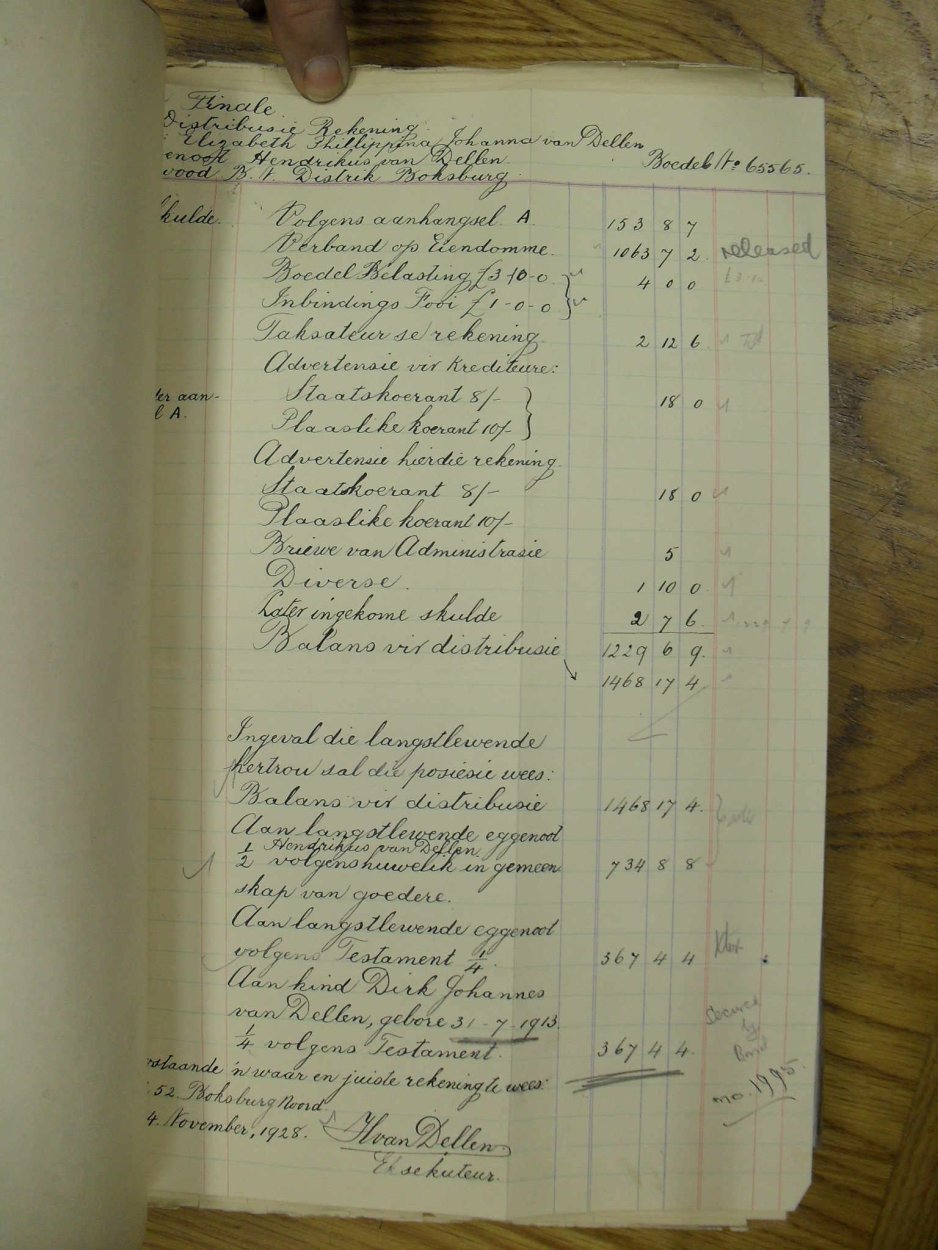 Finale
Distribusie Rekening
Elizabeth Phillippina Johanna van Dellen
enoot Hendrikus van Dellen Boedel No 65565.
wood B. N. Distrik Boksburg
kulde. Volgens aanhangsel A. 153 8 7
Verband op Eiendomme. 1063 7 2. released
Boedel Belasting £3-10-0 4 0 0 £3-10
Inbindings Fooi £1-0-0
Taksateur se rekening 2 12 6.
Advertensie vir Krediteure:
er aan- Staatskoerant 8/- 18 0
l A. Plaaslike koerant 10/-
Advertensie hierdie rekening.
Staatskoerant 8/- 18 0
Plaaslike koerant 10/-
Briewe van Administrasie 5
Diverse. 1 10 0
Later ingekome skulde 2 7 6.
Balans vir distribusie 1229 6 9.
1468 17 4
Ingeval die langstlewende
hertrou sal die posiesie wees:
Balans vir distribusie 1468 17 4.
Aan langstlewende eggenoot
Hendrikus van Dellen
1/2 volgens huwelik in gemeen 734 8 8
skap van goedere.
Aan langstlewende eggenoot
volgens Testament 1/4. 367 4 4
Aan kind Dirk Johannes
van Dellen, gebore 31-7-1913. Secured
by
1/4 volgens Testament. 367 4 4. Bond
rstaande 'n waar en juiste rekening te wees: no. 1995.
52. Boksburg Noord.
4. November, 1928. H van Dellen
Eksekuteur.